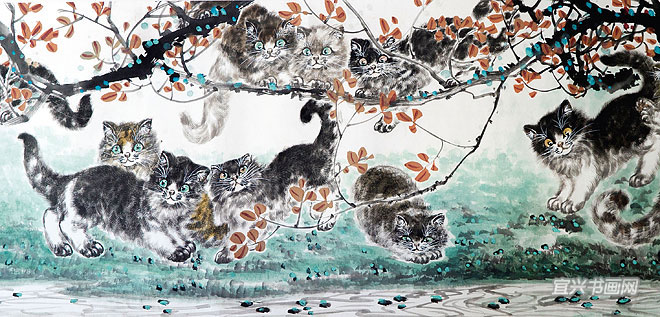 宜兴书画网